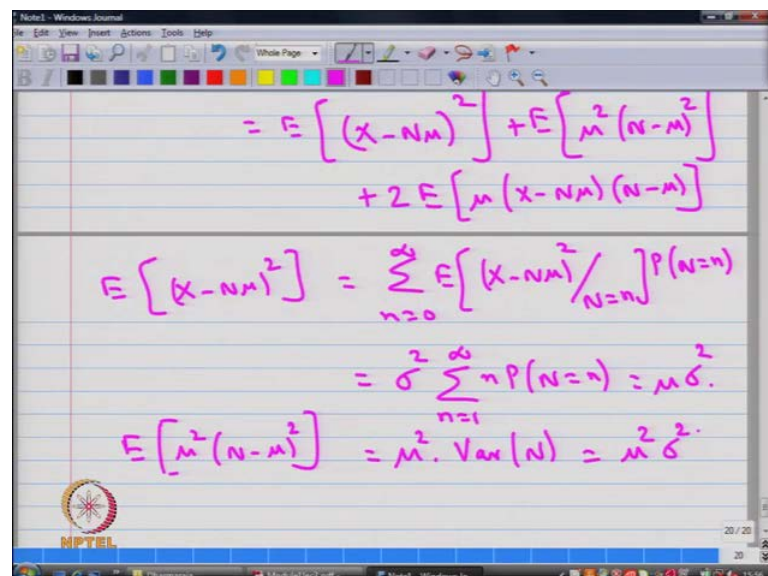 Note1 - Windows Journal
File Edit View Insert Actions Tools Help
Whole Page
B I
= E[(X-Nμ)²] + E[μ²(N-μ)²]
+ 2E[μ(X-Nμ)(N-μ)]
E[(X-Nμ)²] = ∑_{n=0}^{∞} E[(X-Nμ)²/N=n] P(N=n)
= σ² ∑_{n=1}^{∞} n P(N=n) = μσ².
E[μ²(N-μ)²] = μ². Var(N) = μ²σ².
NPTEL
20/20
20
Note1 - Windows Jo...
15:56